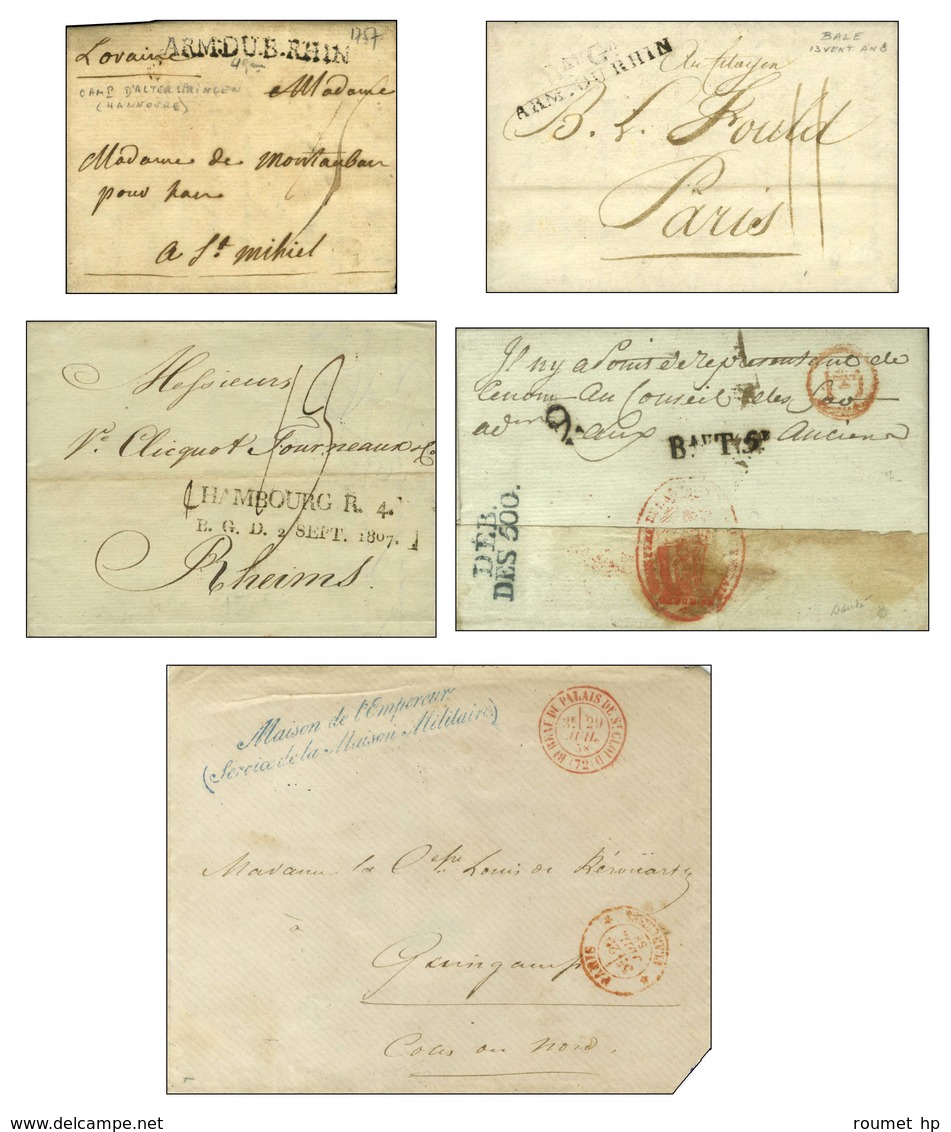 ARM.DU.B.RHIN
1757
Lovaine
49
CAMP D'ALTERSBRINGEN
(HANNOVRE)
Madame
Madame de Montauban
pour
a St. mihiel
BALE
13 VENT AN 8
ARM. DU RHIN
Au Citoyen
B. L. Fould
Paris
Messieurs
Ve. Clicquot Fourneaux & Co
HAMBOURG R. 4.
B. G. D. 2 SEPT. 1807.
Rheims.
Il ny a Point de representant de
ce nom Au Conseil des
aux Anciens
BAU T. 5E
DEB.
DES 500.
Maison de l'Empereur
(Service de la Maison Militaire)
BUREAU DU PALAIS DE ST CLOUD
3E 29
JUIL.
58
(72)
Madame la Ctesse Louis de
à
PARIS
Guingamp
Côtes du Nord.
roumet hp